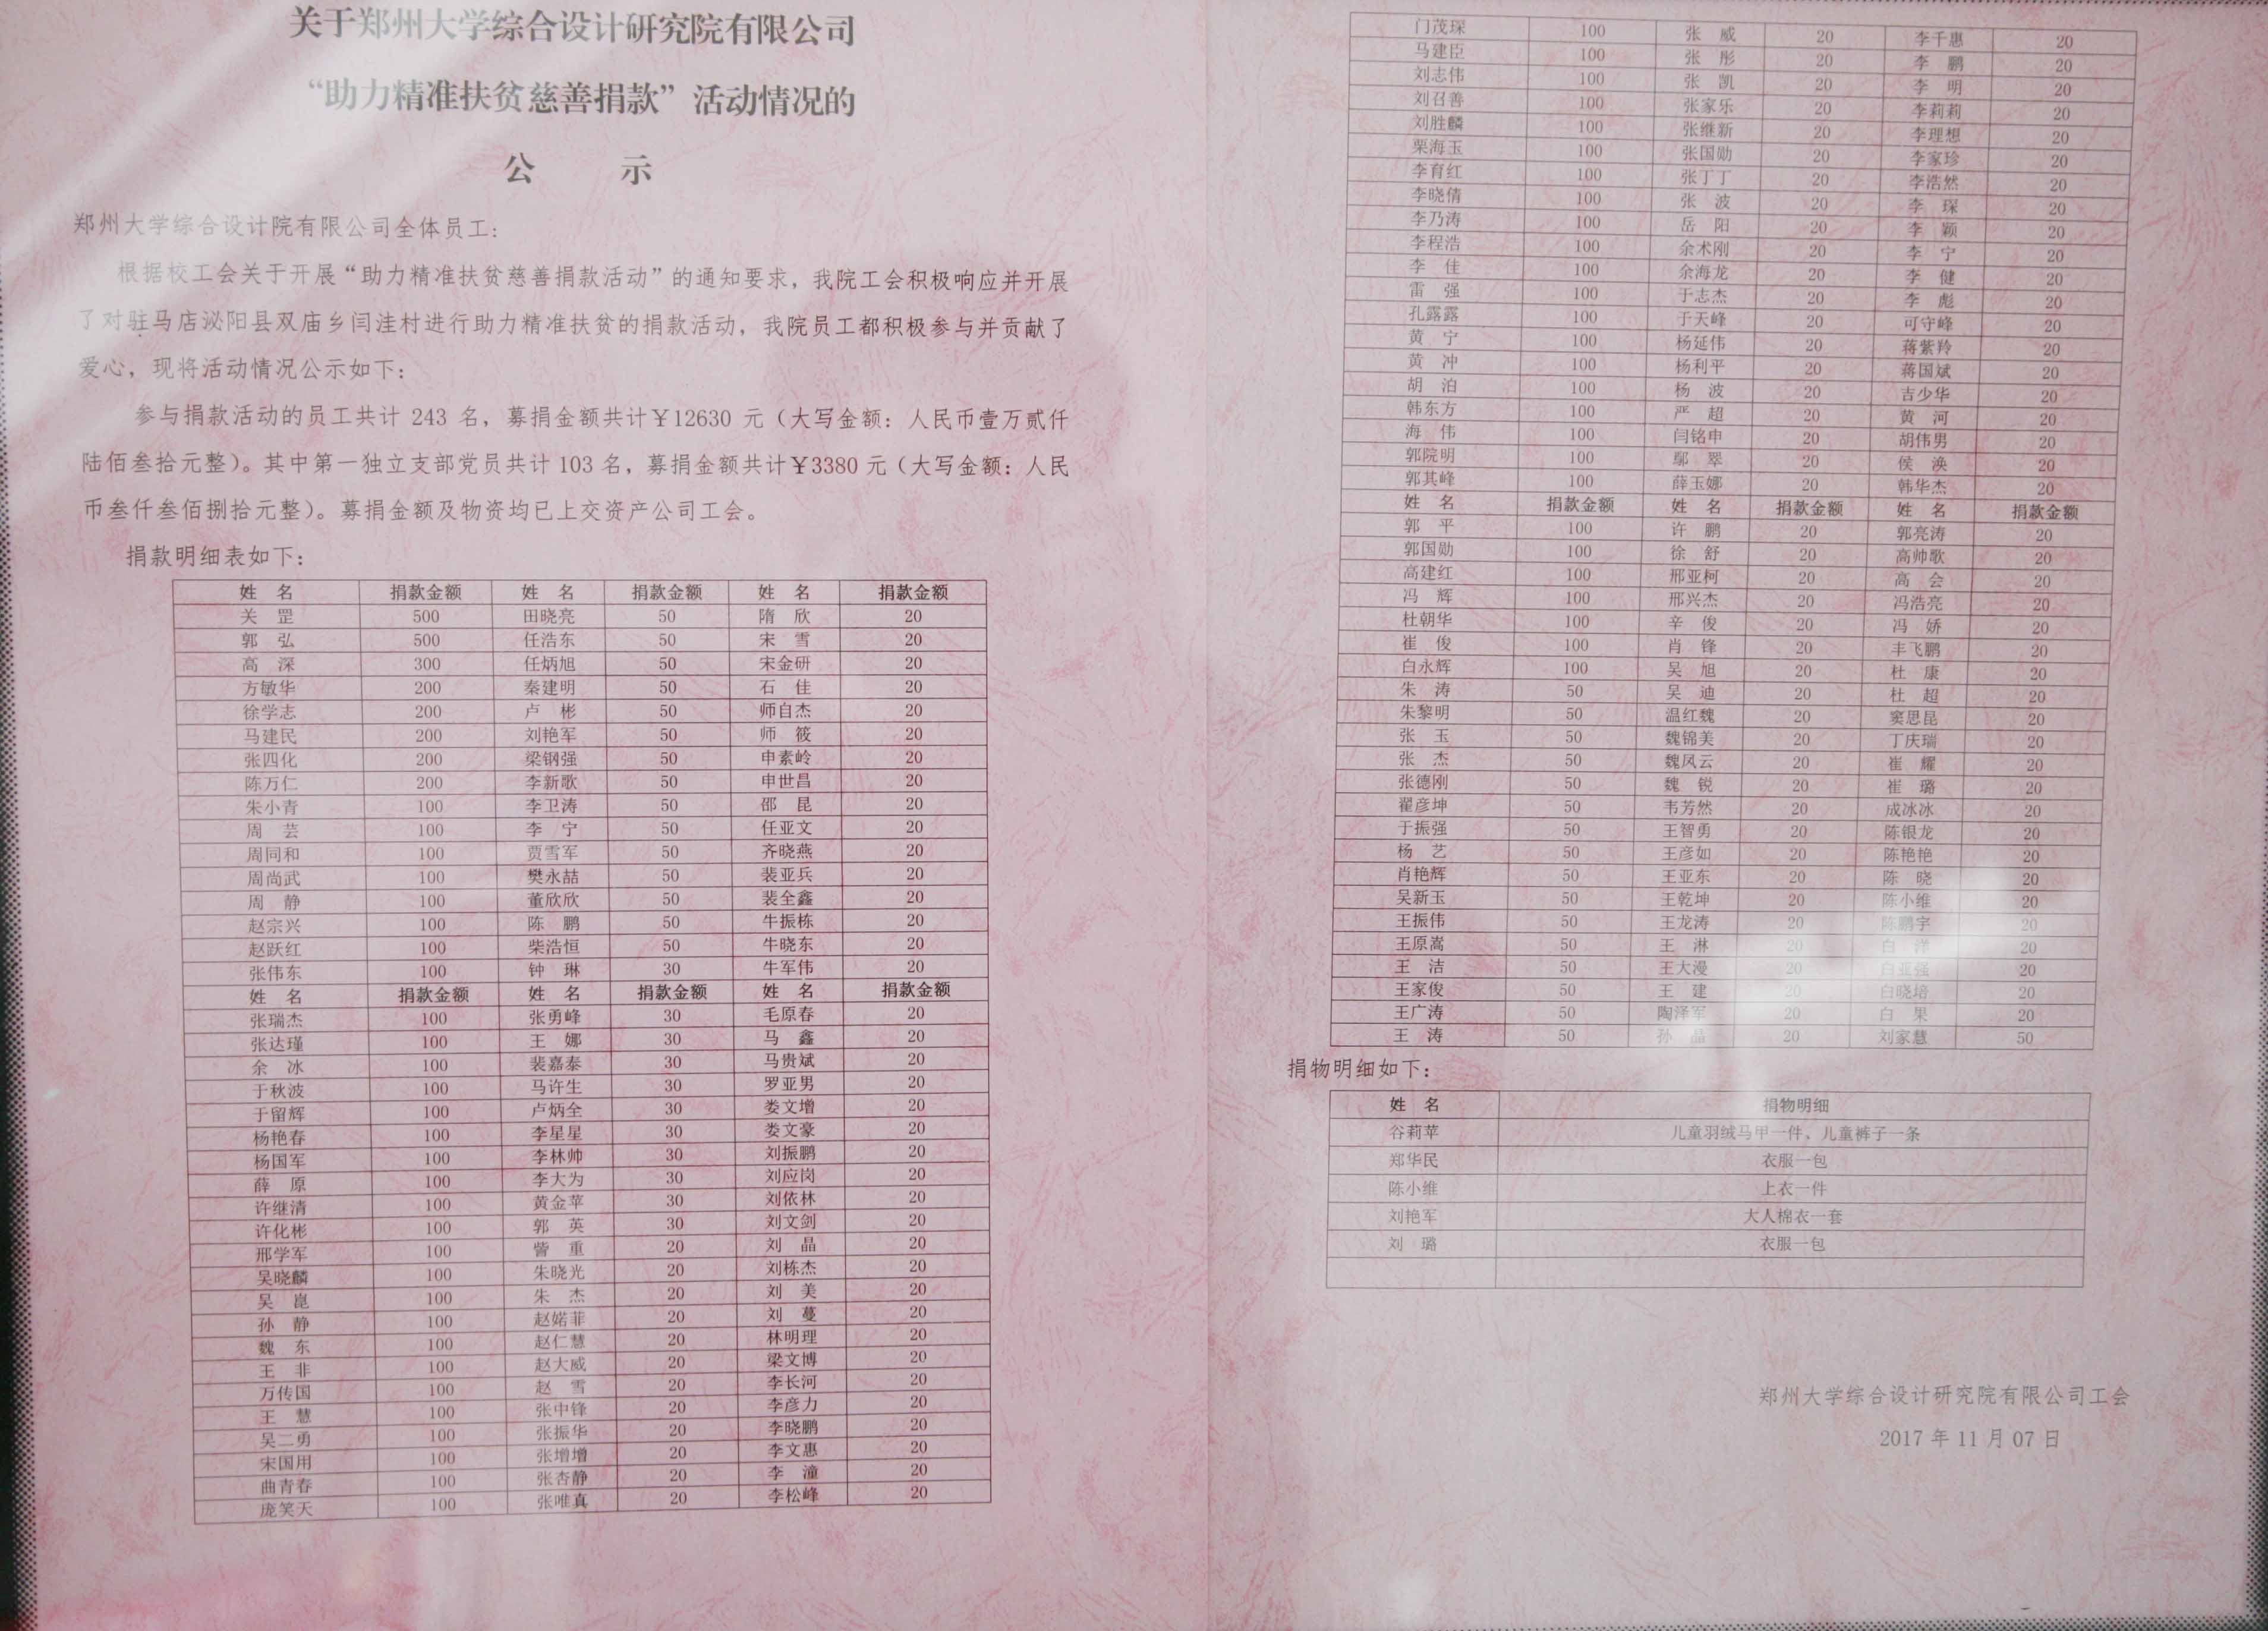 关于郑州大学综合设计研究院有限公司
“助力精准扶贫慈善捐款”活动情况的
公 示
郑州大学综合设计院有限公司全体员工：
根据校工会关于开展“助力精准扶贫慈善捐款活动”的通知要求，我院工会积极响应并开展
了对驻马店泌阳县双庙乡闫洼村进行助力精准扶贫的捐款活动，我院员工都积极参与并贡献了
爱心，现将活动情况公示如下：
参与捐款活动的员工共计 243 名，募捐金额共计￥12630 元（大写金额：人民币壹万贰仟
陆佰叁拾元整）。其中第一独立支部党员共计 103 名，募捐金额共计￥3380 元（大写金额：人民
币叁仟叁佰捌拾元整）。募捐金额及物资均已上交资产公司工会。
捐款明细表如下：
姓 名 捐款金额 姓 名 捐款金额 姓 名 捐款金额
关 罡 500 田晓亮 50 隋 欣 20
郭 弘 500 任浩东 50 宋 雪 20
高 深 300 任炳旭 50 宋金研 20
方敏华 200 秦建明 50 石 佳 20
徐学志 200 卢 彬 50 师自杰 20
马建民 200 刘艳军 50 师 筱 20
张四化 200 梁钢强 50 申素岭 20
陈万仁 200 李新歌 50 申世昌 20
朱小青 100 李卫涛 50 邵 昆 20
周 芸 100 李 宁 50 任亚文 20
周同和 100 贾雪军 50 齐晓燕 20
周尚武 100 樊永喆 50 裴亚兵 20
周 静 100 董欣欣 50 裴全鑫 20
赵宗兴 100 陈 鹏 50 牛振栋 20
赵跃红 100 柴浩恒 50 牛晓东 20
张伟东 100 钟 琳 30 牛军伟 20
姓 名 捐款金额 姓 名 捐款金额 姓 名 捐款金额
张瑞杰 100 张勇峰 30 毛原春 20
张达瑾 100 王 娜 30 马 鑫 20
余 冰 100 裴嘉泰 30 马贵斌 20
于秋波 100 马许生 30 罗亚男 20
于留辉 100 卢炳全 30 娄文增 20
杨艳春 100 李星星 30 娄文豪 20
杨国军 100 李林帅 30 刘振鹏 20
薛 原 100 李大为 30 刘应岗 20
许继清 100 黄金苹 30 刘依林 20
许化彬 100 郭 英 30 刘文剑 20
邢学军 100 訾 重 20 刘 晶 20
吴晓麟 100 朱晓光 20 刘栋杰 20
吴 崑 100 朱 杰 20 刘 美 20
孙 静 100 赵婼菲 20 刘 蔓 20
魏 东 100 赵仁慧 20 林明理 20
王 非 100 赵大威 20 梁文博 20
万传国 100 赵 雪 20 李长河 20
王 慧 100 张中锋 20 李彦力 20
吴二勇 100 张振华 20 李晓鹏 20
宋国用 100 张增增 20 李文惠 20
曲青春 100 张杏静 20 李 潼 20
庞笑天 100 张唯真 20 李松峰 20
门茂琛 100 张 威 20 李千惠 20
马建臣 100 张 彤 20 李 鹏 20
刘志伟 100 张 凯 20 李 明 20
刘召善 100 张家乐 20 李莉莉 20
刘胜麟 100 张继新 20 李理想 20
栗海玉 100 张国勋 20 李家珍 20
李育红 100 张丁丁 20 李浩然 20
李晓倩 100 张 波 20 李 琛 20
李乃涛 100 岳 阳 20 李 颖 20
李程浩 100 余术刚 20 李 宁 20
李 佳 100 余海龙 20 李 健 20
雷 强 100 于志杰 20 李 彪 20
孔露露 100 于天峰 20 可守峰 20
黄 宁 100 杨延伟 20 蒋紫羚 20
黄 冲 100 杨利平 20 蒋国斌 20
胡 泊 100 杨 波 20 吉少华 20
韩东方 100 严 超 20 黄 河 20
海 伟 100 闫铭申 20 胡伟男 20
郭院明 100 鄢 翠 20 侯 涣 20
郭其峰 100 薛玉娜 20 韩华杰 20
姓 名 捐款金额 姓 名 捐款金额 姓 名 捐款金额
郭 平 100 许 鹏 20 郭亮涛 20
郭国勋 100 徐 舒 20 高帅歌 20
高建红 100 邢亚柯 20 高 会 20
冯 辉 100 邢兴杰 20 冯浩亮 20
杜朝华 100 辛 俊 20 冯 娇 20
崔 俊 100 肖 锋 20 丰飞鹏 20
白永辉 100 吴 旭 20 杜 康 20
朱 涛 50 吴 迪 20 杜 超 20
朱黎明 50 温红魏 20 窦思昆 20
张 玉 50 魏锦美 20 丁庆瑞 20
张 杰 50 魏凤云 20 崔 耀 20
张德刚 50 魏 锐 20 崔 璐 20
翟彦坤 50 韦芳然 20 成冰冰 20
于振强 50 王智勇 20 陈银龙 20
杨 艺 50 王彦如 20 陈艳艳 20
肖艳辉 50 王亚东 20 陈 晓 20
吴新玉 50 王乾坤 20 陈小维 20
王振伟 50 王龙涛 20 陈鹏宇 20
王原嵩 50 王 淋 20 白 洋 20
王 洁 50 王大漫 20 白亚强 20
王家俊 50 王 建 20 白晓培 20
王广涛 50 陶泽军 20 白 果 20
王 涛 50 孙 晶 20 刘家慧 50
捐物明细如下：
姓 名 捐物明细
谷莉苹 儿童羽绒马甲一件、儿童裤子一条
郑华民 衣服一包
陈小维 上衣一件
刘艳军 大人棉衣一套
刘 璐 衣服一包
郑州大学综合设计研究院有限公司工会
2017 年 11 月 07 日